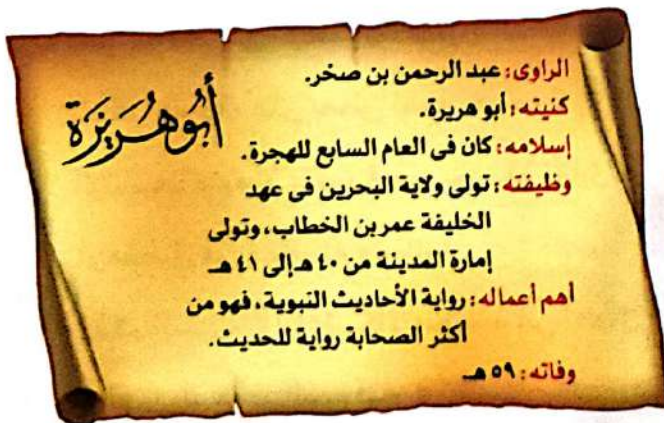 أبو هُرَيْرَة
الراوى: عبد الرحمن بن صخر.
كنيته: أبو هريرة.
إسلامه: كان فى العام السابع للهجرة.
وظيفته: تولى ولاية البحرين فى عهد
الخليفة عمر بن الخطاب، وتولى
إمارة المدينة من ٤٠ هـ إلى ٤١ هـ
أهم أعماله: رواية الأحاديث النبوية، فهو من
أكثر الصحابة رواية للحديث.
وفاته: ٥٩ هـ